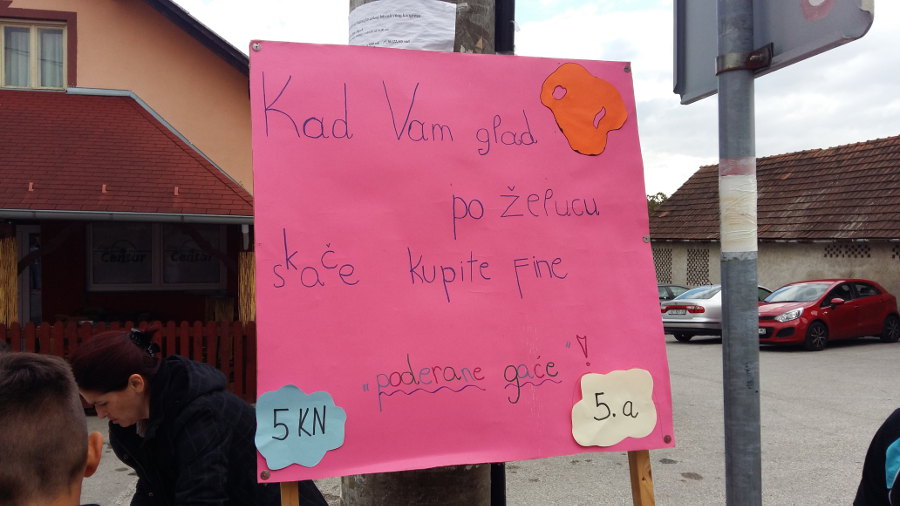 Kad Vam glad
po želucu
skače kupite fine
"poderane gaće"!
5 KN
5.a
Centar